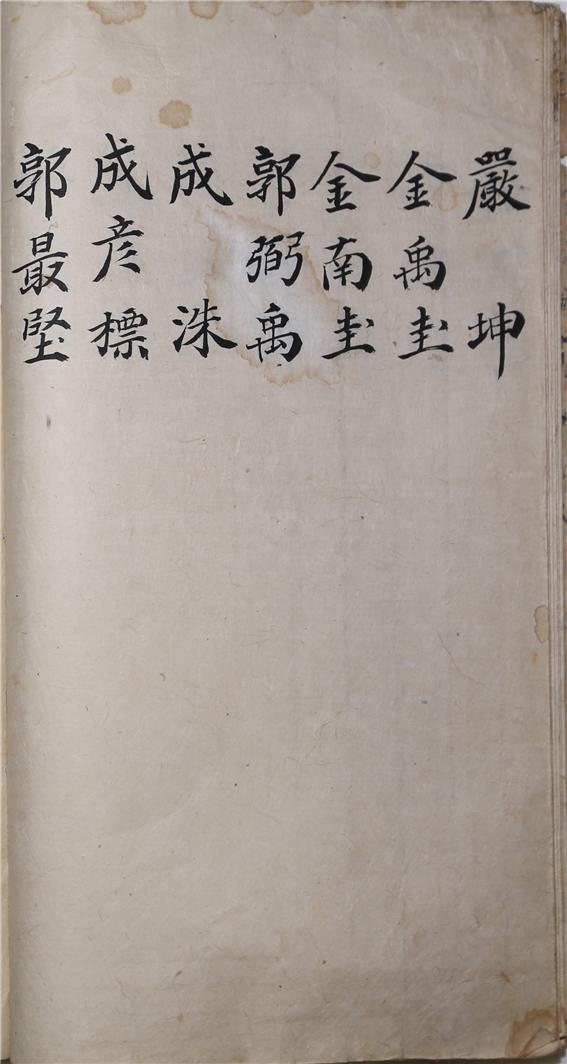 嚴坤
金禹圭
金南圭
郭弼禹
成洙
成彦標
郭最堅